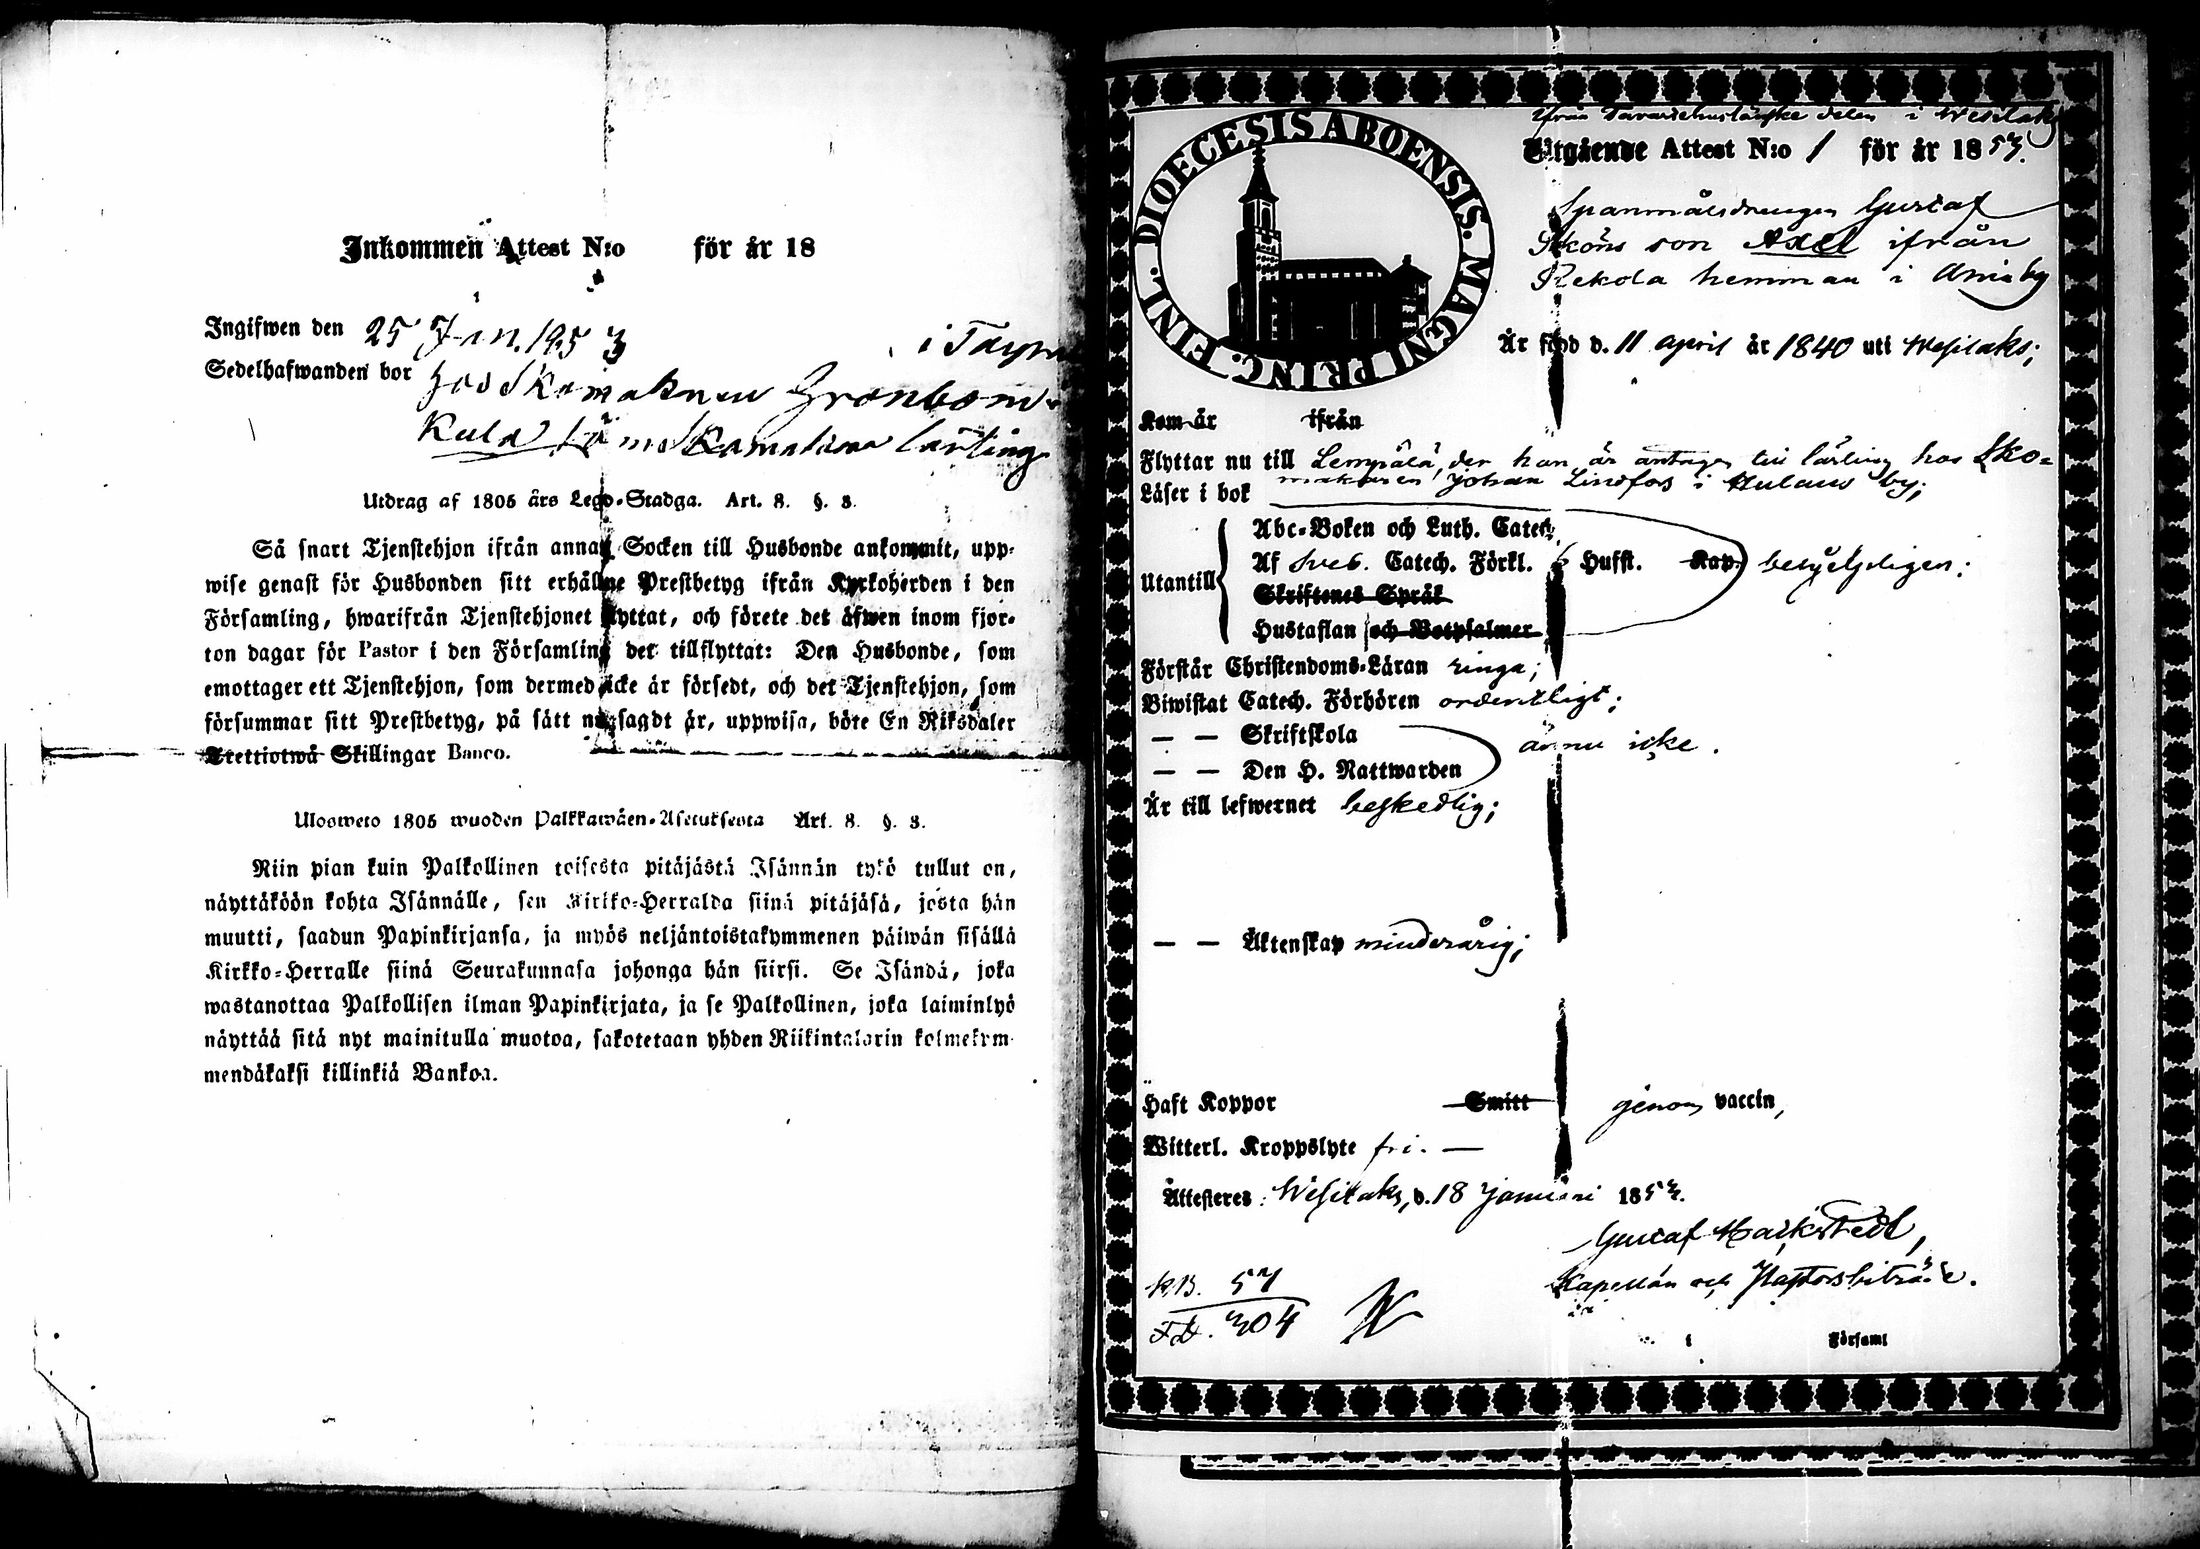 Inkommen Attest N:o för år 18
Ingifwen den 25 Jan. 1853
Sedelhafwanden bor hos Skomakaren i
Kula
Utdrag af 1805 års Lego-Stadga. Art. 8. §. 8.
Så snart Tjenstehjon ifrån annan Socken till Husbonde ankommit, upp-
wise genast för Husbonden sitt erhållne Prestbetyg ifrån Kyrkoherden i den
Församling, hwarifrån Tjenstehjonet flyttat, och förete det äfwen inom fjor-
ton dagar för Pastor i den Församling det tillflyttat: Den Husbonde, som
emottager ett Tjenstehjon, som dermed icke är försedt, och det Tjenstehjon, som
försummar sitt Prestbetyg, på sätt nu sagdt är, uppwisa, böte En Riksdaler
Trettiotwå Skillingar Banco.
Ulosweto 1805 wuoden Palkkawäen-Asetuksesta Art. 8. §. 8.
Niin pian kuin Palkollinen toisesta pitäjästä Isännän tykö tullut on,
näyttäköön kohta Isännälle, sen Kirkko-Herralda siinä pitäjäsä, josta hän
muutti, saadun Papinkirjansa, ja myös neljäntoistakymmenen päiwän sisällä
Kirkko-Herralle siinä Seurakunnasa johonga hän siirsi. Se Isändä, joka
wastanottaa Palkollisen ilman Papinkirjata, ja se Palkollinen, joka laiminlyö
näyttää sitä nyt mainitulla muotoa, sakotetaan yhden Riikintalarin kolmekym-
mendäkaksi killinkiä Bankoa.
DIOECESIS ABOENSIS. MAGNI PRINC. FINL.
ifrån Tavastehuslänske delen i Wesilaks
Utgående Attest N:o 1 för år 1853.
Spanmålsdrengen Gustaf
Sköns son Axel ifrån
Rekola hemman i by
Är född d. 11 april år 1840 uti Wesilaks;
Kom år ifrån
Flyttar nu till Lempälä, der han är antagen till lärling hos Sko-
makaren Johan Lindfors i by;
Läser i bok
Abc-Boken och Luth. Catech.
Utantill Af Sveb. Catech. Förkl. 6 Hufst. Kap. behjelpligen;
Skriftenes Språk
Hustaflan och Botpsalmer
Förstår Christendoms-Läran ringa;
Biwistat Catech. Förhören ordentligt;
— — Skriftskola
— — Den H. Nattwarden ännu icke.
Är till lefwernet beskedlig;
— — Äktenskap minderårig;
Haft Koppor Smitt genom vaccin,
Witterl. Kroppslyte fri. —
Attesteres: Wesilaks, d. 18 Januari 1853.
Gustaf
Kapellan och Pastorsbiträde.
K.B. 57
304
i Församl